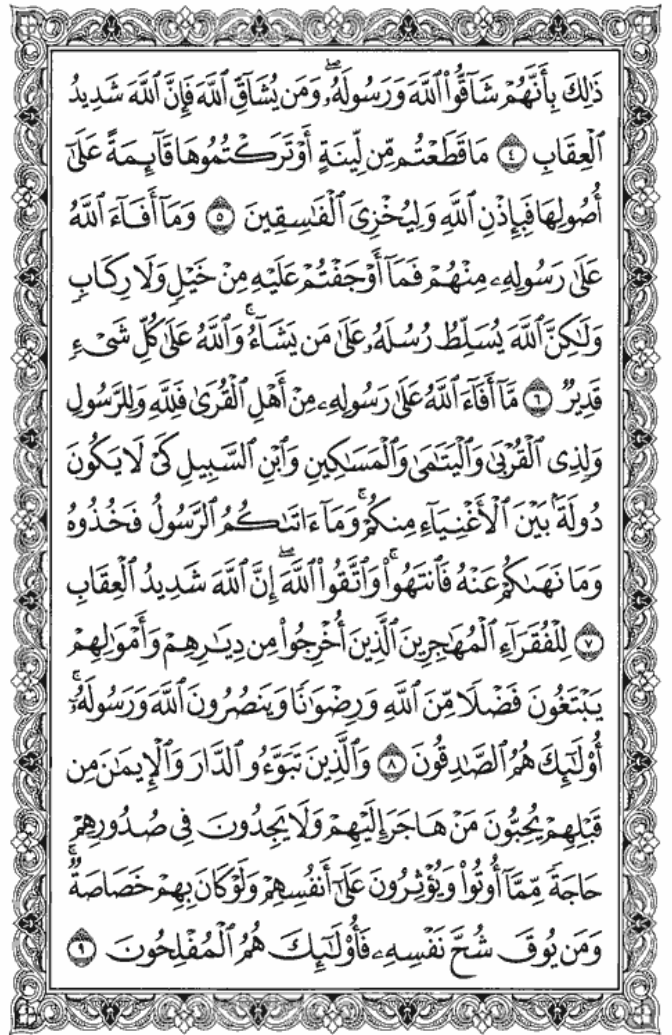 ذَٰلِكَ بِأَنَّهُمْ شَآقُّوا۟ ٱللَّهَ وَرَسُولَهُۥ ۖ وَمَن يُشَآقِّ ٱللَّهَ فَإِنَّ ٱللَّهَ شَدِيدُ
ٱلْعِقَابِ ٤ مَا قَطَعْتُم مِّن لِّينَةٍ أَوْ تَرَكْتُمُوهَا قَآئِمَةً عَلَىٰٓ
أُصُولِهَا فَبِإِذْنِ ٱللَّهِ وَلِيُخْزِىَ ٱلْفَٰسِقِينَ ٥ وَمَآ أَفَآءَ ٱللَّهُ
عَلَىٰ رَسُولِهِۦ مِنْهُمْ فَمَآ أَوْجَفْتُمْ عَلَيْهِ مِنْ خَيْلٍ وَلَا رِكَابٍ
وَلَٰكِنَّ ٱللَّهَ يُسَلِّطُ رُسُلَهُۥ عَلَىٰ مَن يَشَآءُ ۚ وَٱللَّهُ عَلَىٰ كُلِّ شَىْءٍ
قَدِيرٌ ٦ مَّآ أَفَآءَ ٱللَّهُ عَلَىٰ رَسُولِهِۦ مِنْ أَهْلِ ٱلْقُرَىٰ فَلِلَّهِ وَلِلرَّسُولِ
وَلِذِى ٱلْقُرْبَىٰ وَٱلْيَتَٰمَىٰ وَٱلْمَسَٰكِينِ وَٱبْنِ ٱلسَّبِيلِ كَىْ لَا يَكُونَ
دُولَةًۢ بَيْنَ ٱلْأَغْنِيَآءِ مِنكُمْ ۚ وَمَآ ءَاتَىٰكُمُ ٱلرَّسُولُ فَخُذُوهُ
وَمَا نَهَىٰكُمْ عَنْهُ فَٱنتَهُوا۟ ۚ وَٱتَّقُوا۟ ٱللَّهَ ۖ إِنَّ ٱللَّهَ شَدِيدُ ٱلْعِقَابِ
٧ لِلْفُقَرَآءِ ٱلْمُهَٰجِرِينَ ٱلَّذِينَ أُخْرِجُوا۟ مِن دِيَٰرِهِمْ وَأَمْوَٰلِهِمْ
يَبْتَغُونَ فَضْلًا مِّنَ ٱللَّهِ وَرِضْوَٰنًا وَيَنصُرُونَ ٱللَّهَ وَرَسُولَهُۥٓ ۚ
أُو۟لَٰٓئِكَ هُمُ ٱلصَّٰدِقُونَ ٨ وَٱلَّذِينَ تَبَوَّءُو ٱلدَّارَ وَٱلْإِيمَٰنَ مِن
قَبْلِهِمْ يُحِبُّونَ مَنْ هَاجَرَ إِلَيْهِمْ وَلَا يَجِدُونَ فِى صُدُورِهِمْ
حَاجَةً مِّمَّآ أُوتُوا۟ وَيُؤْثِرُونَ عَلَىٰٓ أَنفُسِهِمْ وَلَوْ كَانَ بِهِمْ خَصَاصَةٌ ۚ
وَمَن يُوقَ شُحَّ نَفْسِهِۦ فَأُو۟لَٰٓئِكَ هُمُ ٱلْمُفْلِحُونَ ٩